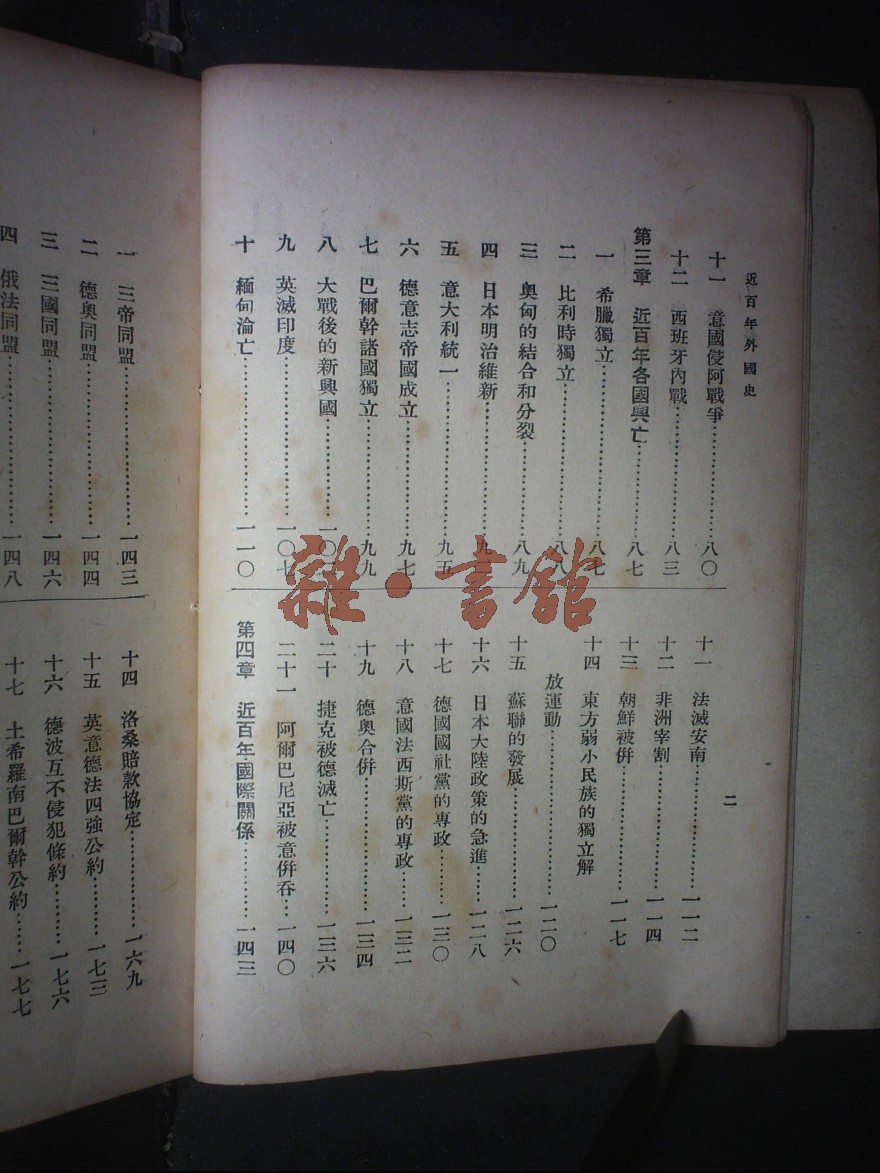 近百年外國史
十一 意國侵阿戰爭…………八〇
十二 西班牙內戰…………八三
第三章 近百年各國興亡…………八七
一 希臘獨立…………八七
二 比利時獨立…………八八
三 奧匈的結合和分裂…………八九
四 日本明治維新…………九
五 意大利統一…………九五
六 德意志帝國成立…………九七
七 巴爾幹諸國獨立…………九九
八 大戰後的新興國…………一〇
九 英滅印度…………一〇七
十 緬甸淪亡…………一一〇
二
十一 法滅安南…………一一二
十二 非洲宰割…………一一四
十三 朝鮮被併…………一一七
十四 東方弱小民族的獨立解
放運動…………一二〇
十五 蘇聯的發展…………一二六
十六 日本大陸政策的急進……一二八
十七 德國國社黨的專政………一三〇
十八 意國法西斯黨的專政……一三二
十九 德奧合併…………一三四
二十 捷克被德滅亡…………一三六
二十一 阿爾巴尼亞被意併吞…一四〇
第四章 近百年國際關係…………一四三
一 三帝同盟…………一四三
二 德奧同盟…………一四四
三 三國同盟…………一四六
四 俄法同盟…………一四八
十四 洛桑賠款協定…………一六九
十五 英意德法四強公約………一七三
十六 德波互不侵犯條約………一七六
十七 土希羅南巴爾幹公約……一七七
雜·書館